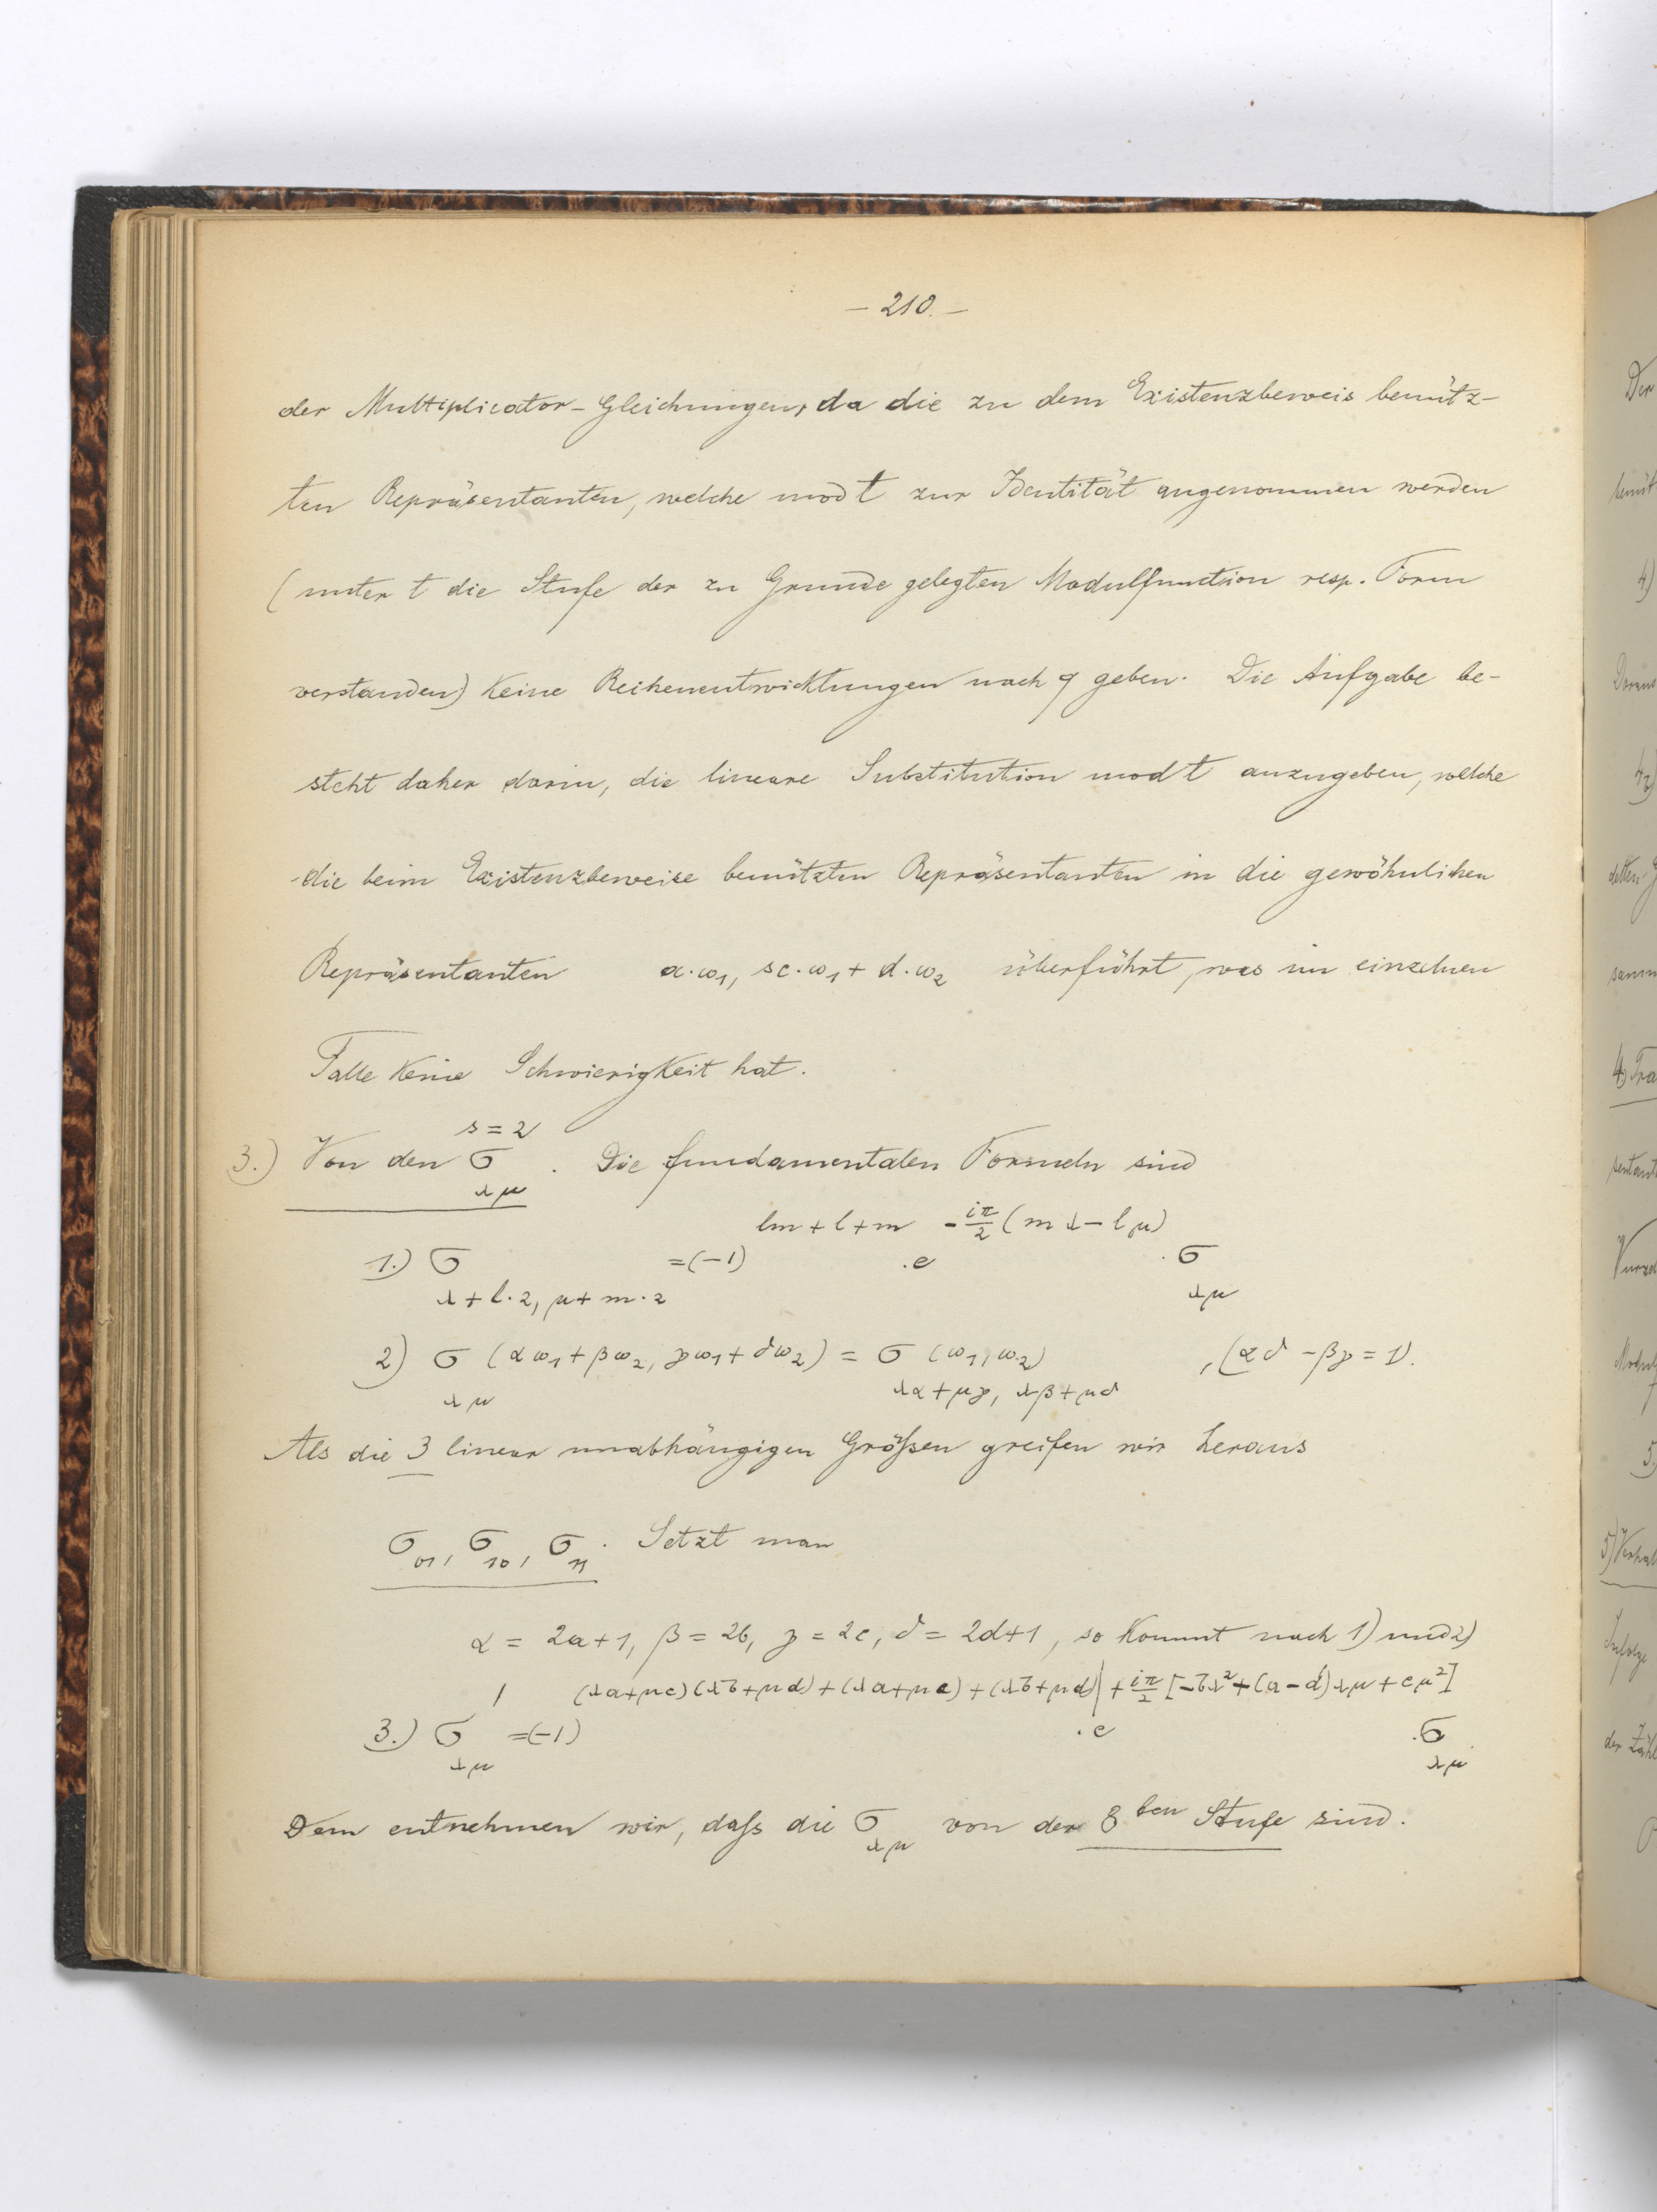 – 210. –
der Multiplicator-Gleichungen, da die zu dem Existenzbeweis benütz-
ten Repräsentanten, welche mod t zur Identität angenommen werden
(unter t die Stufe der zu Grunde gelegten Modulfunction resp. Form
verstanden) keine Reihenentwicklungen nach q geben. Die Aufgabe be-
steht daher darin, die lineare Substitution mod t anzugeben, welche
die beim Existenzbeweise benützten Repräsentanten in die gewöhnlichen
Repräsentanten a·ω₁, sc·ω₁ + d·ω₂ überführt, was im einzelnen
Falle keine Schwierigkeit hat.
3.) Von den σ_{λμ}^{s=2}. Die fundamentalen Formeln sind
1.) σ_{λ+l·2, μ+m·2} = (-1)^{lm+l+m} · e^{-iπ/2 (mλ-lμ)} · σ_{λμ}
2) σ_{λμ} (αω₁ + βω₂, γω₁ + δω₂) = σ_{λα+μγ, λβ+μδ} (ω₁, ω₂) , (αδ - βγ = 1).
Als die 3 linear unabhängigen Größen greifen wir heraus
σ₀₁, σ₁₀, σ₁₁. Setzt man
α = 2a+1, β = 2b, γ = 2c, δ = 2d+1, so kommt nach 1) und 2)
3.) σ'_{λμ} = (-1)^{(λa+μc)(λb+μd)+(λa+μc)+(λb+μd)} · e^{+iπ/2 [-bλ²+(a-d)λμ+cμ²]} · σ_{λμ}
Dem entnehmen wir, daß die σ_{λμ} von der 8ten Stufe sind.
Der
4)
5)